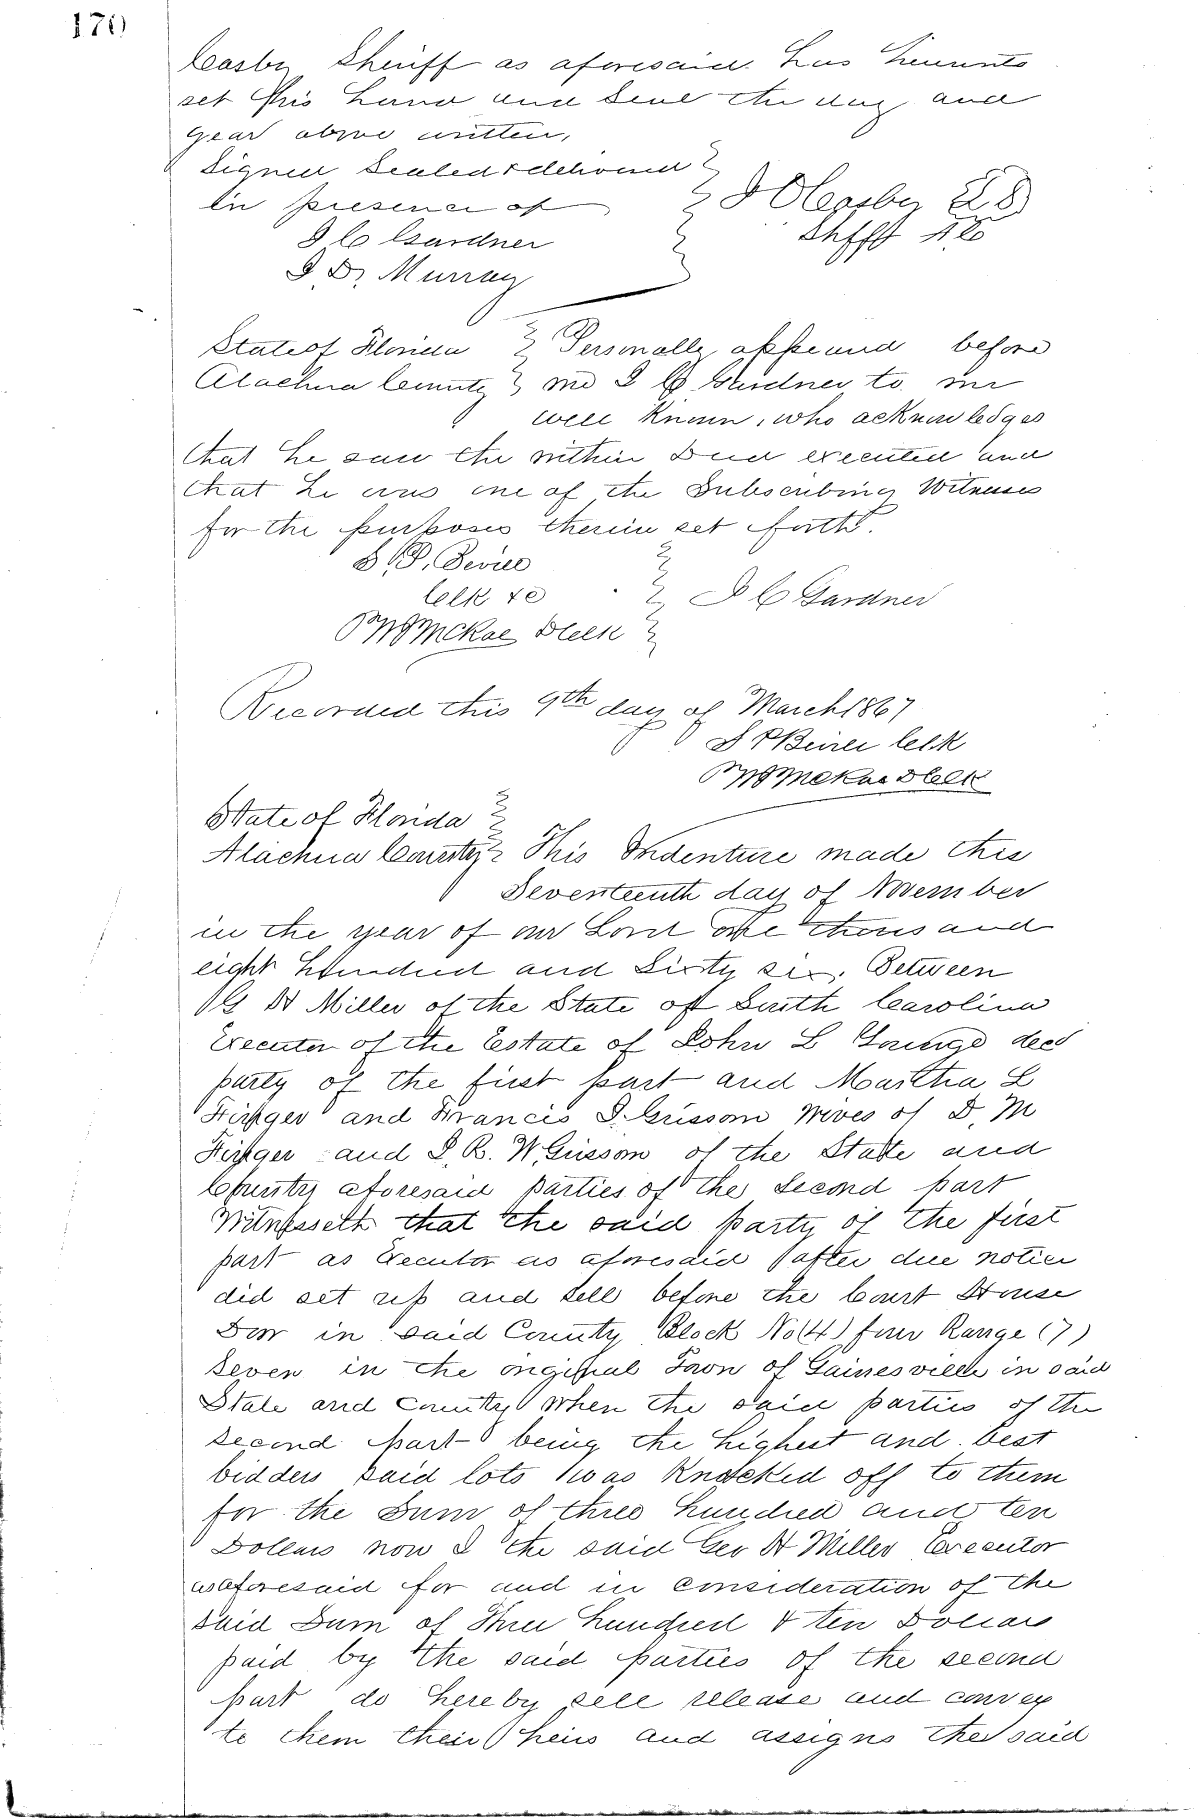 170
Casby Sheriff as aforesaid has hereunto
set this hand and seal the day and
year above written,
Signed Sealed & delivered
in presence of
J C Gardner
J. D. Murray
Casby L S
Shfff A C
State of Florida Personally appeared before
Alachua County me J C Gardner to me
well known, who acknowledges
that he saw the within Deed executed and
that he was one of the Subscribing Witnesses
for the purposes therein set forth.
Clk &c J C Gardner
McRae D Clk
Recorded this 9th day of March 1867
Clk
McRae D Clk
State of Florida
Alachua County This Indenture made this
Seventeenth day of November
in the year of our Lord one thousand
eight hundred and Sixty six. Between
G H Miller of the State of South Carolina
Executor of the Estate of John L Younge decd
party of the first part and Martha L
and Francis J. Grissom Wives of D. M
and J. R. W. Grissom of the State and
County aforesaid parties of the Second part
Witnesseth that the said party of the first
part as Executor as aforesaid after due notice
did set up and sell before the Court House
Door in said County Block No (4) four Range (7)
Seven in the original Town of Gainesville in said
State and County when the said parties of the
second part being the highest and best
bidders said lots was Knocked off to them
for the Sum of three hundred and ten
Dollars now I the said Geo H Miller Executor
as aforesaid for and in consideration of the
said Sum of Three hundred & ten Dollars
paid by the said parties of the second
part do hereby sell release and convey
to them their heirs and assigns the said